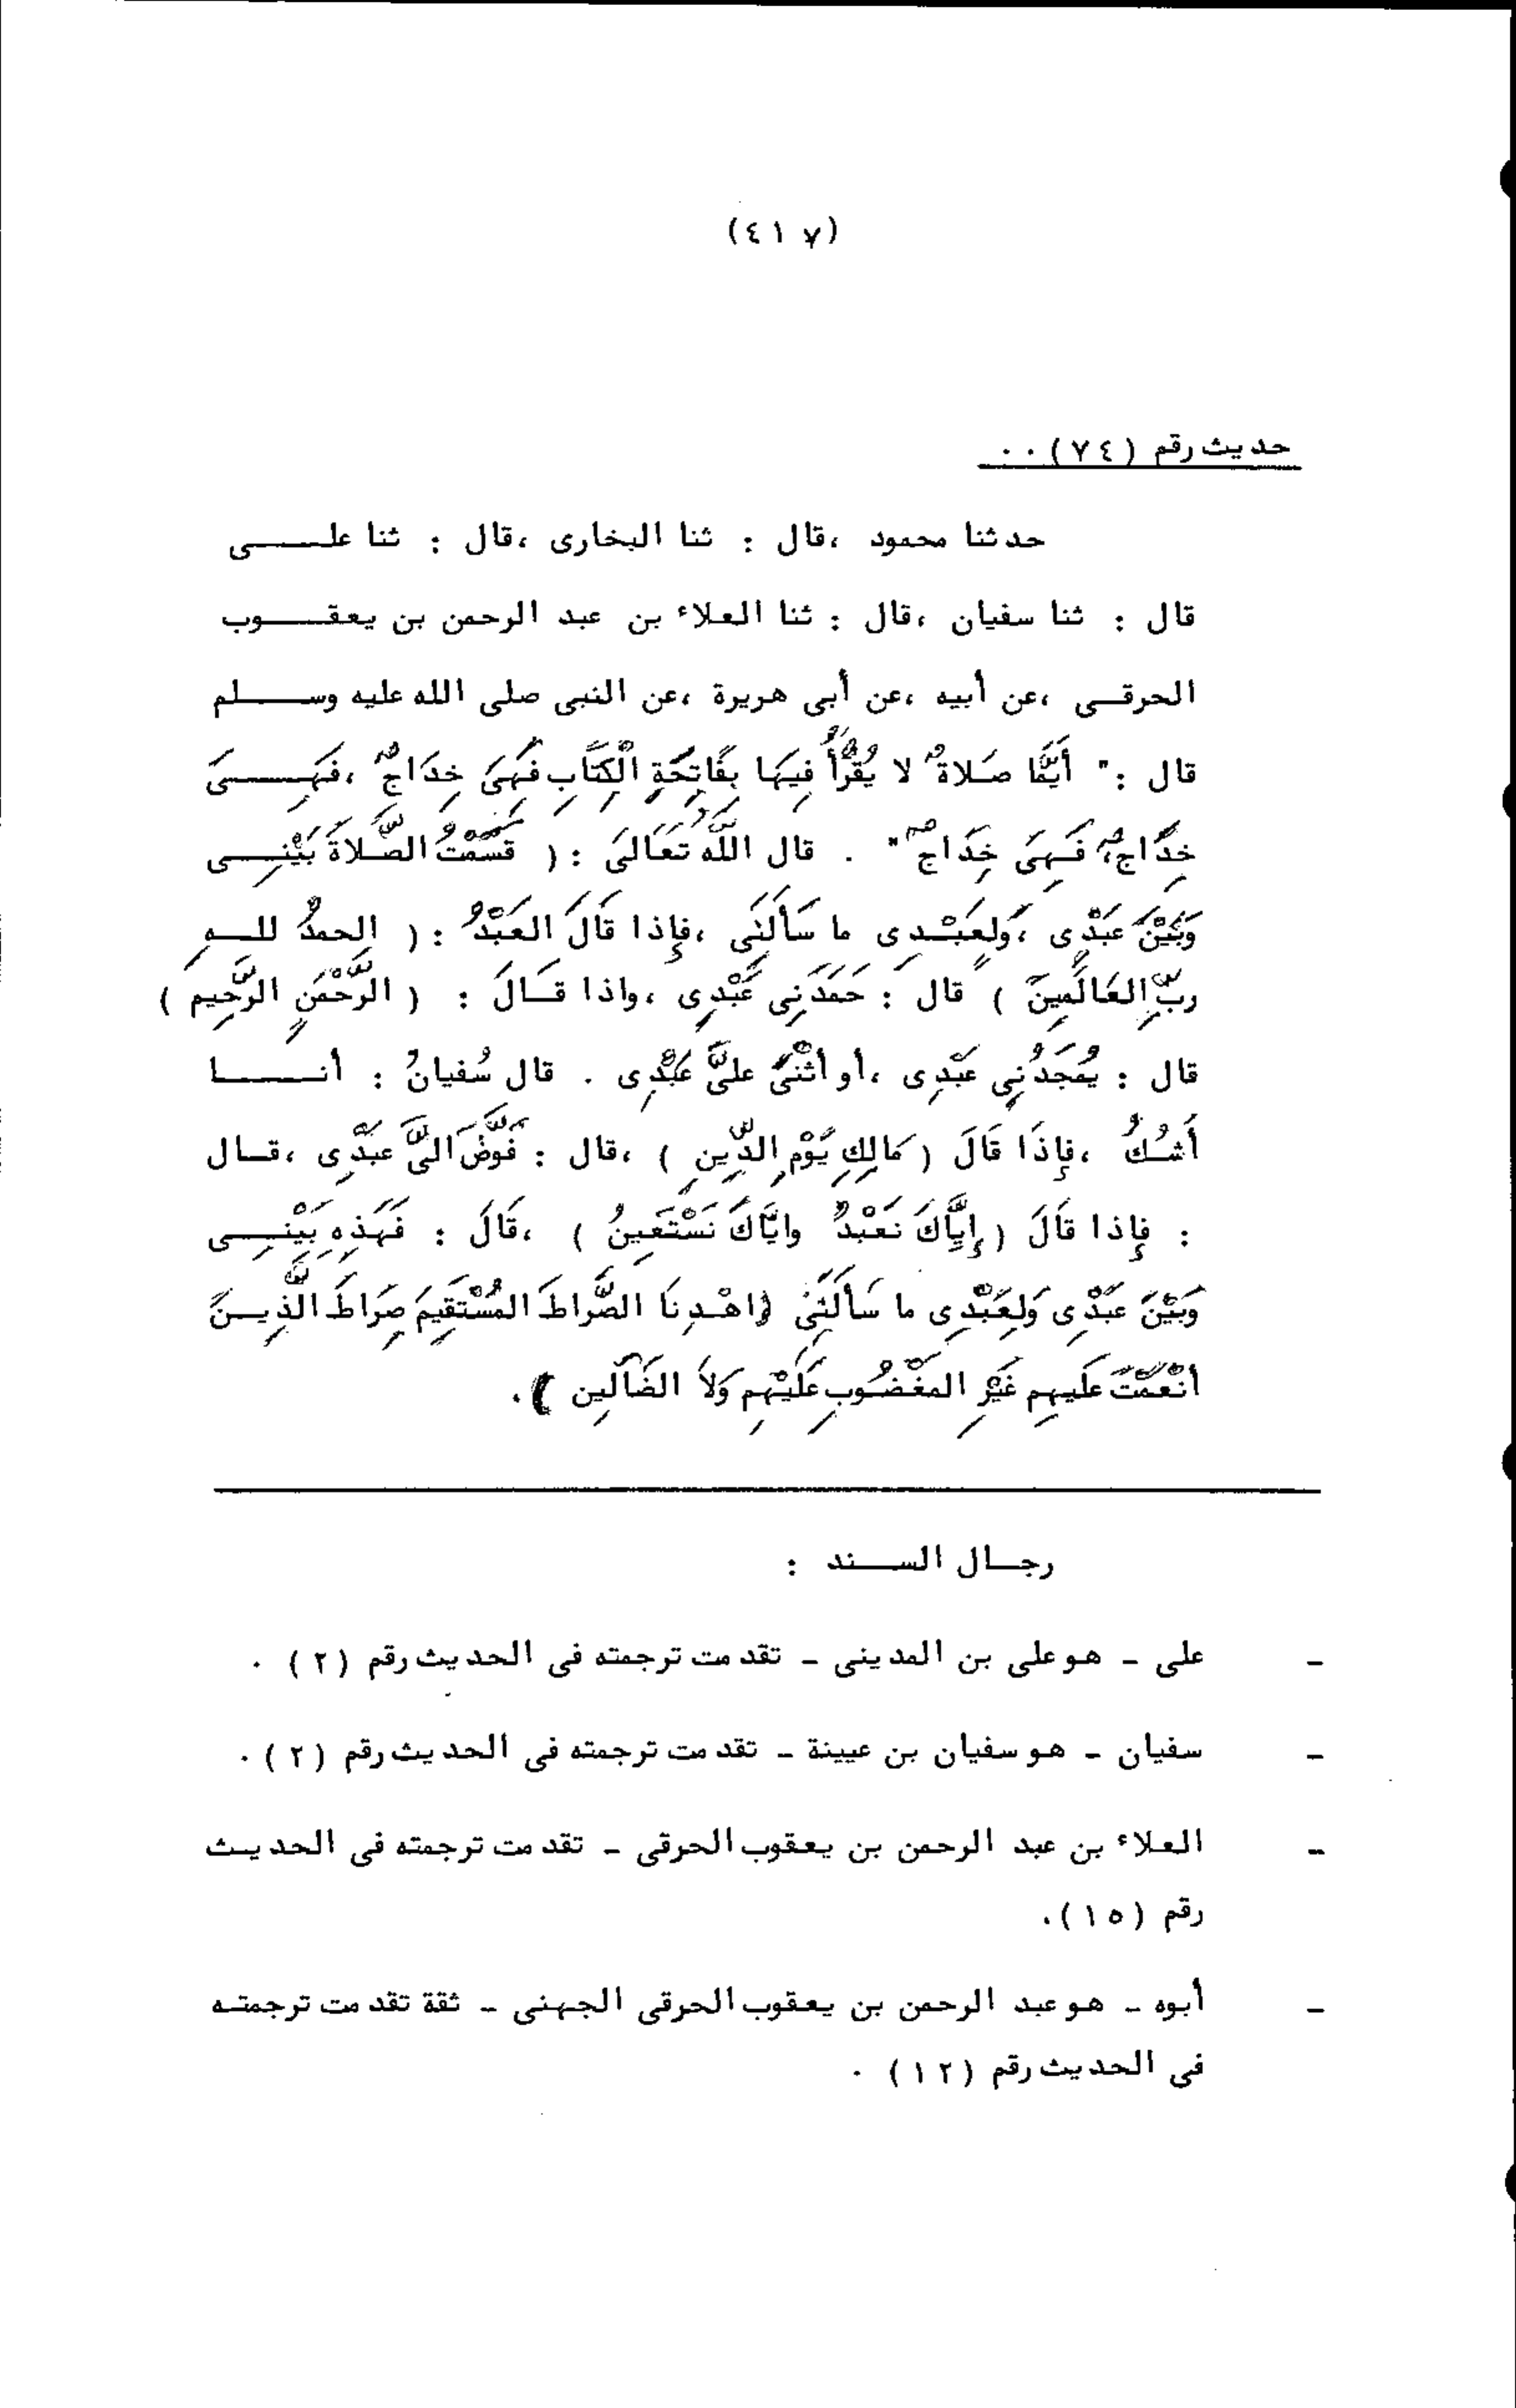 (٤١٧)
حديث رقم (٧٤) ..
حدثنا محمود ، قال : ثنا البخارى ، قال : ثنا على
قال : ثنا سفيان ، قال : ثنا العلاء بن عبد الرحمن بن يعقوب
الحرقى ، عن أبيه ، عن أبى هريرة ، عن النبى صلى الله عليه وسلم
قال : " أَيُّمَا صَلاةٌ لا يُقْرَأُ فِيهَا بِفَاتِحَةِ الْكِتَابِ فَهِىَ خِدَاجٌ ، فَهِىَ
خِدَاجٌ، فَهِىَ خِدَاجٌ " . قال اللَّهُ تَعَالىَ : ( قَسَمْتُ الصَّلاةَ بَيْنِى
وَبَيْنَ عَبْدِى ، وَلِعَبْدِى ما سَأَلَنِى ، فإِذا قَالَ العَبْدُ : ( الحمدُ للهِ
ربِّ العَالَمِينَ ) قال : حَمَدَنِى عَبْدِى ، واذا قَالَ : ( الرَّحْمَنِ الرَّحِيم )
قال : يُمَجِّدُنِى عَبْدِى ، أو أثْنَىَ علىَّ عَبْدِى . قال سُفيانُ : أنا
أَشُكُ ، فإِذَا قَالَ ( مَالِكِ يَوْمِ الدِّينِ ) ، قال : فَوَّضَ الىَّ عَبْدِى ، قال
: فإِذا قَالَ ( إِيَّاكَ نَعْبُدُ وايَّاكَ نَسْتَعِينُ ) ، قَالَ : فَهَذِهِ بَيْنِى
وَبَيْنَ عَبْدِى وَلِعَبْدِى ما سَأَلَنِى (اهْدِنَا الصِّراطَ المُسْتَقِيمَ صِرَاطَ الَّذِينَ
أنْعَمْتَ عَلَيهِم غَيْرِ المَغْضُوبِ عَلَيْهِم وَلاَ الضَآلِين ).
رجال السند :
- على - هو على بن المدينى - تقدمت ترجمته فى الحديث رقم (٢) .
- سفيان - هو سفيان بن عيينة - تقدمت ترجمته فى الحديث رقم (٢) .
- العلاء بن عبد الرحمن بن يعقوب الحرقى - تقدمت ترجمته فى الحديث
رقم (١٥).
- أبوه - هو عبد الرحمن بن يعقوب الحرقى الجهنى - ثقة تقدمت ترجمته
فى الحديث رقم (١٢) .